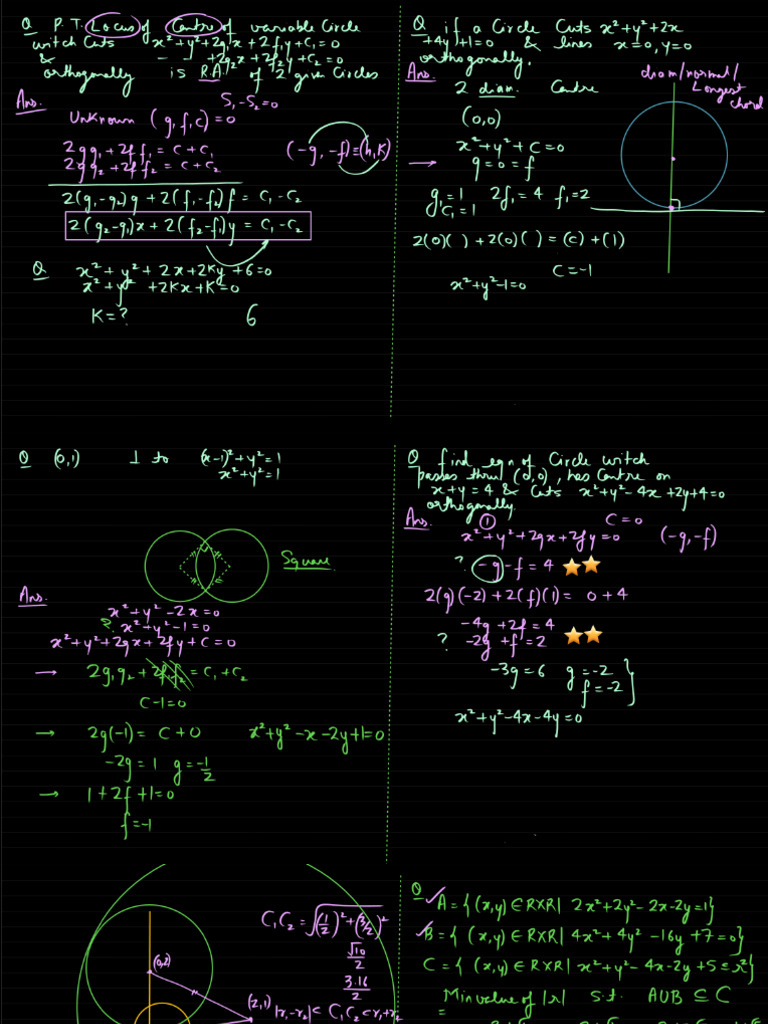 Q P.T. Locus of Centre of variable Circle
witch Cuts x²+y²+2g₁x+2f₁y+C₁=0
& — +2g₂x+2f₂y+C₂=0
orthogonally is R.A. of 2 give Circles
S₁-S₂=0
Ans.
Unknown (g,f,c)=0
2gg₁+2ff₁ = C+C₁
(-g,-f)=(h,K)
2gg₂+2ff₂ = C+C₂
2(g₁-g₂)g + 2(f₁-f₂)f = C₁-C₂
2(g₂-g₁)x + 2(f₂-f₁)y = C₁-C₂
Q x²+y²+2x+2Ky+6=0
x²+y² +2Kx+K=0
K=? 6
Q if a Circle Cuts x²+y²+2x
+4y+1=0 & lines x=0, y=0
orthogonally.
Ans.
2 diam. Centre
diam/normal/
Longest
chord
(0,0)
x²+y²+C=0
→ g=0=f
g₁=1 2f₁=4 f₁=2
C₁=1
2(0)( )+2(0)( )=(c)+(1)
C=-1
x²+y²-1=0
Q (0,1) ⊥ to (x-1)²+y²=1
x²+y²=1
Square
Ans.
x²+y²-2x=0
x²+y²-1=0
x²+y²+2gx+2fy+C=0
→ 2g₁g₂+2f₁f₂=C₁+C₂
C-1=0
→ 2g(-1)= C+0 x²+y²-x-2y+1=0
-2g=1 g=-1/2
→ 1+2f+1=0
f=-1
Q find eqn of Circle witch
passes thru (0,0), has Centre on
x+y=4 & Cuts x²+y²-4x+2y+4=0
orthogonally.
Ans. ① C=0
x²+y²+2gx+2fy=0 (-g,-f)
? -g-f=4
2(g)(-2)+2(f)(1)= 0+4
-4g+2f=4
? -2g+f=2
-3g=6 g=-2
f=-2 }
x²+y²-4x-4y=0
C₁C₂=√(1/2)²+(3/2)²
√10/2
3.16/2
(0,2)
(2,1) |r₁-r₂|<C₁C₂<r₁+r₂
Q
A={(x,y)∈RXR| 2x²+2y²-2x-2y=1}
B={(x,y)∈RXR| 4x²+4y²-16y+7=0}
C={(x,y)∈RXR| x²+y²-4x-2y+5≤r²}
Min value of |r| s.t. AUB⊆C